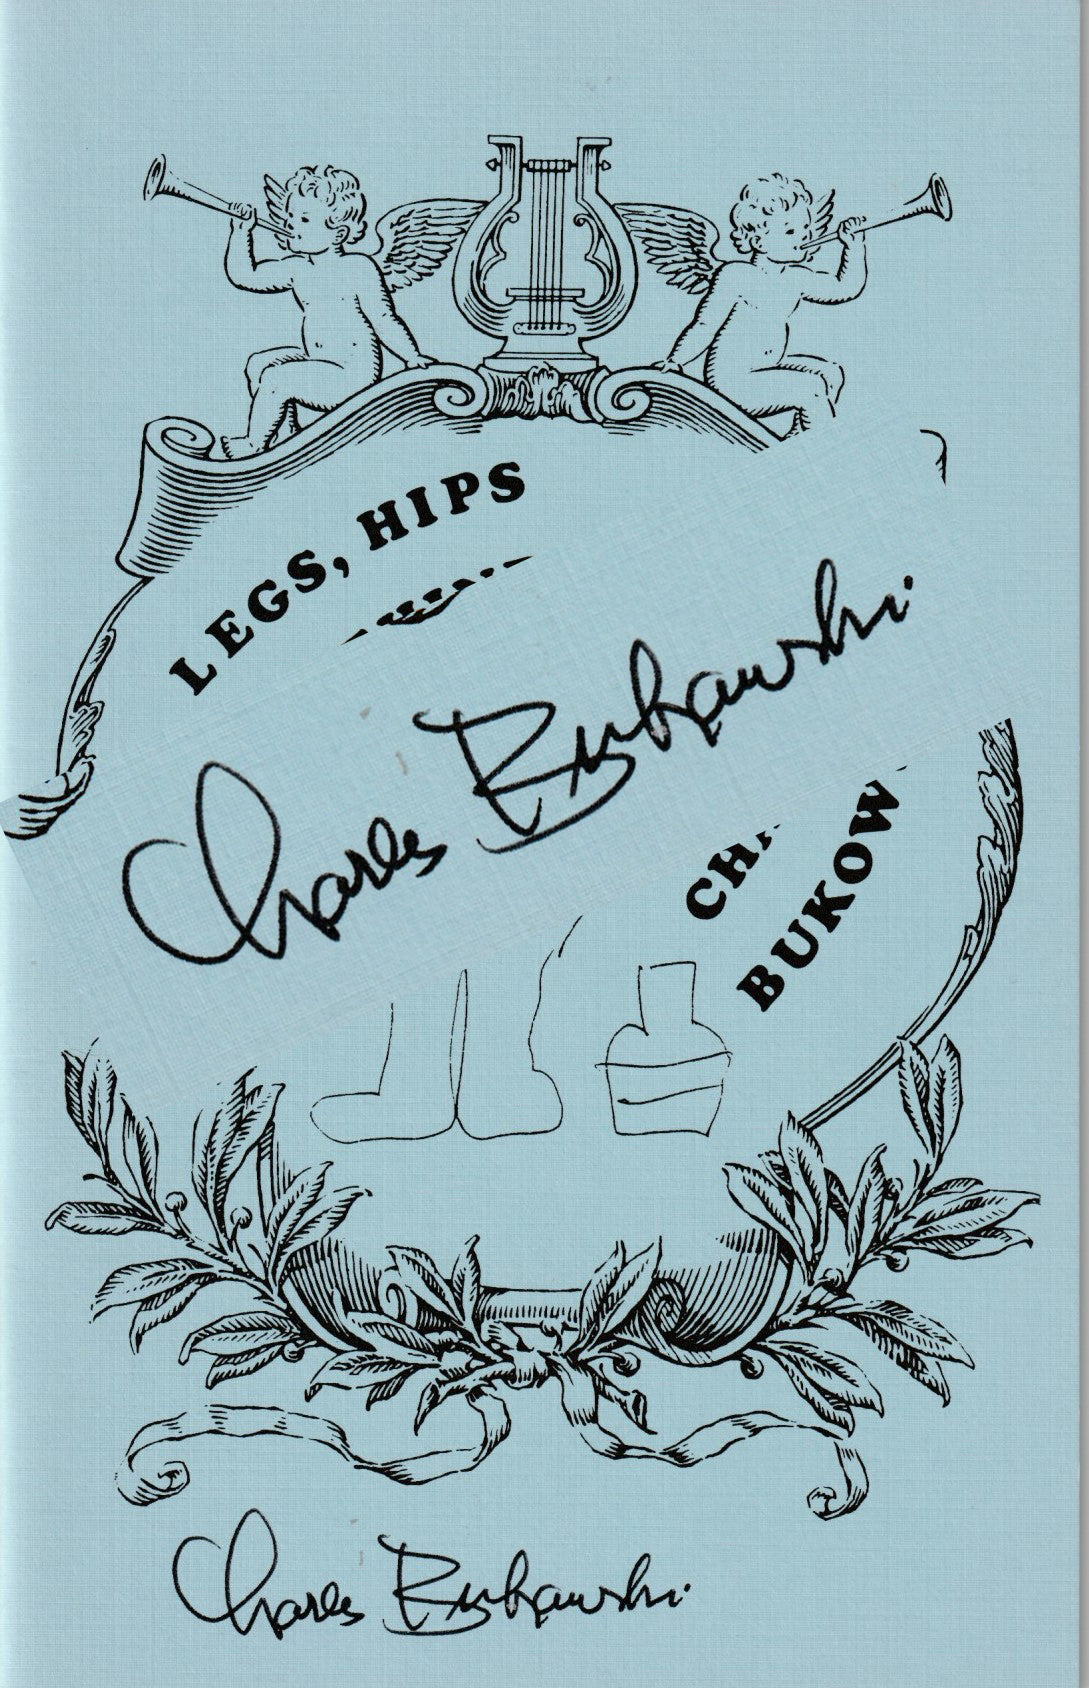 LEGS, HIPS
Charles Bukowski
CHA
BUKOW
Charles Bukowski